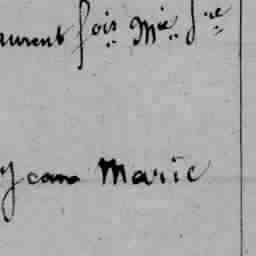 aurent fois Mie Jne
Jean Marie